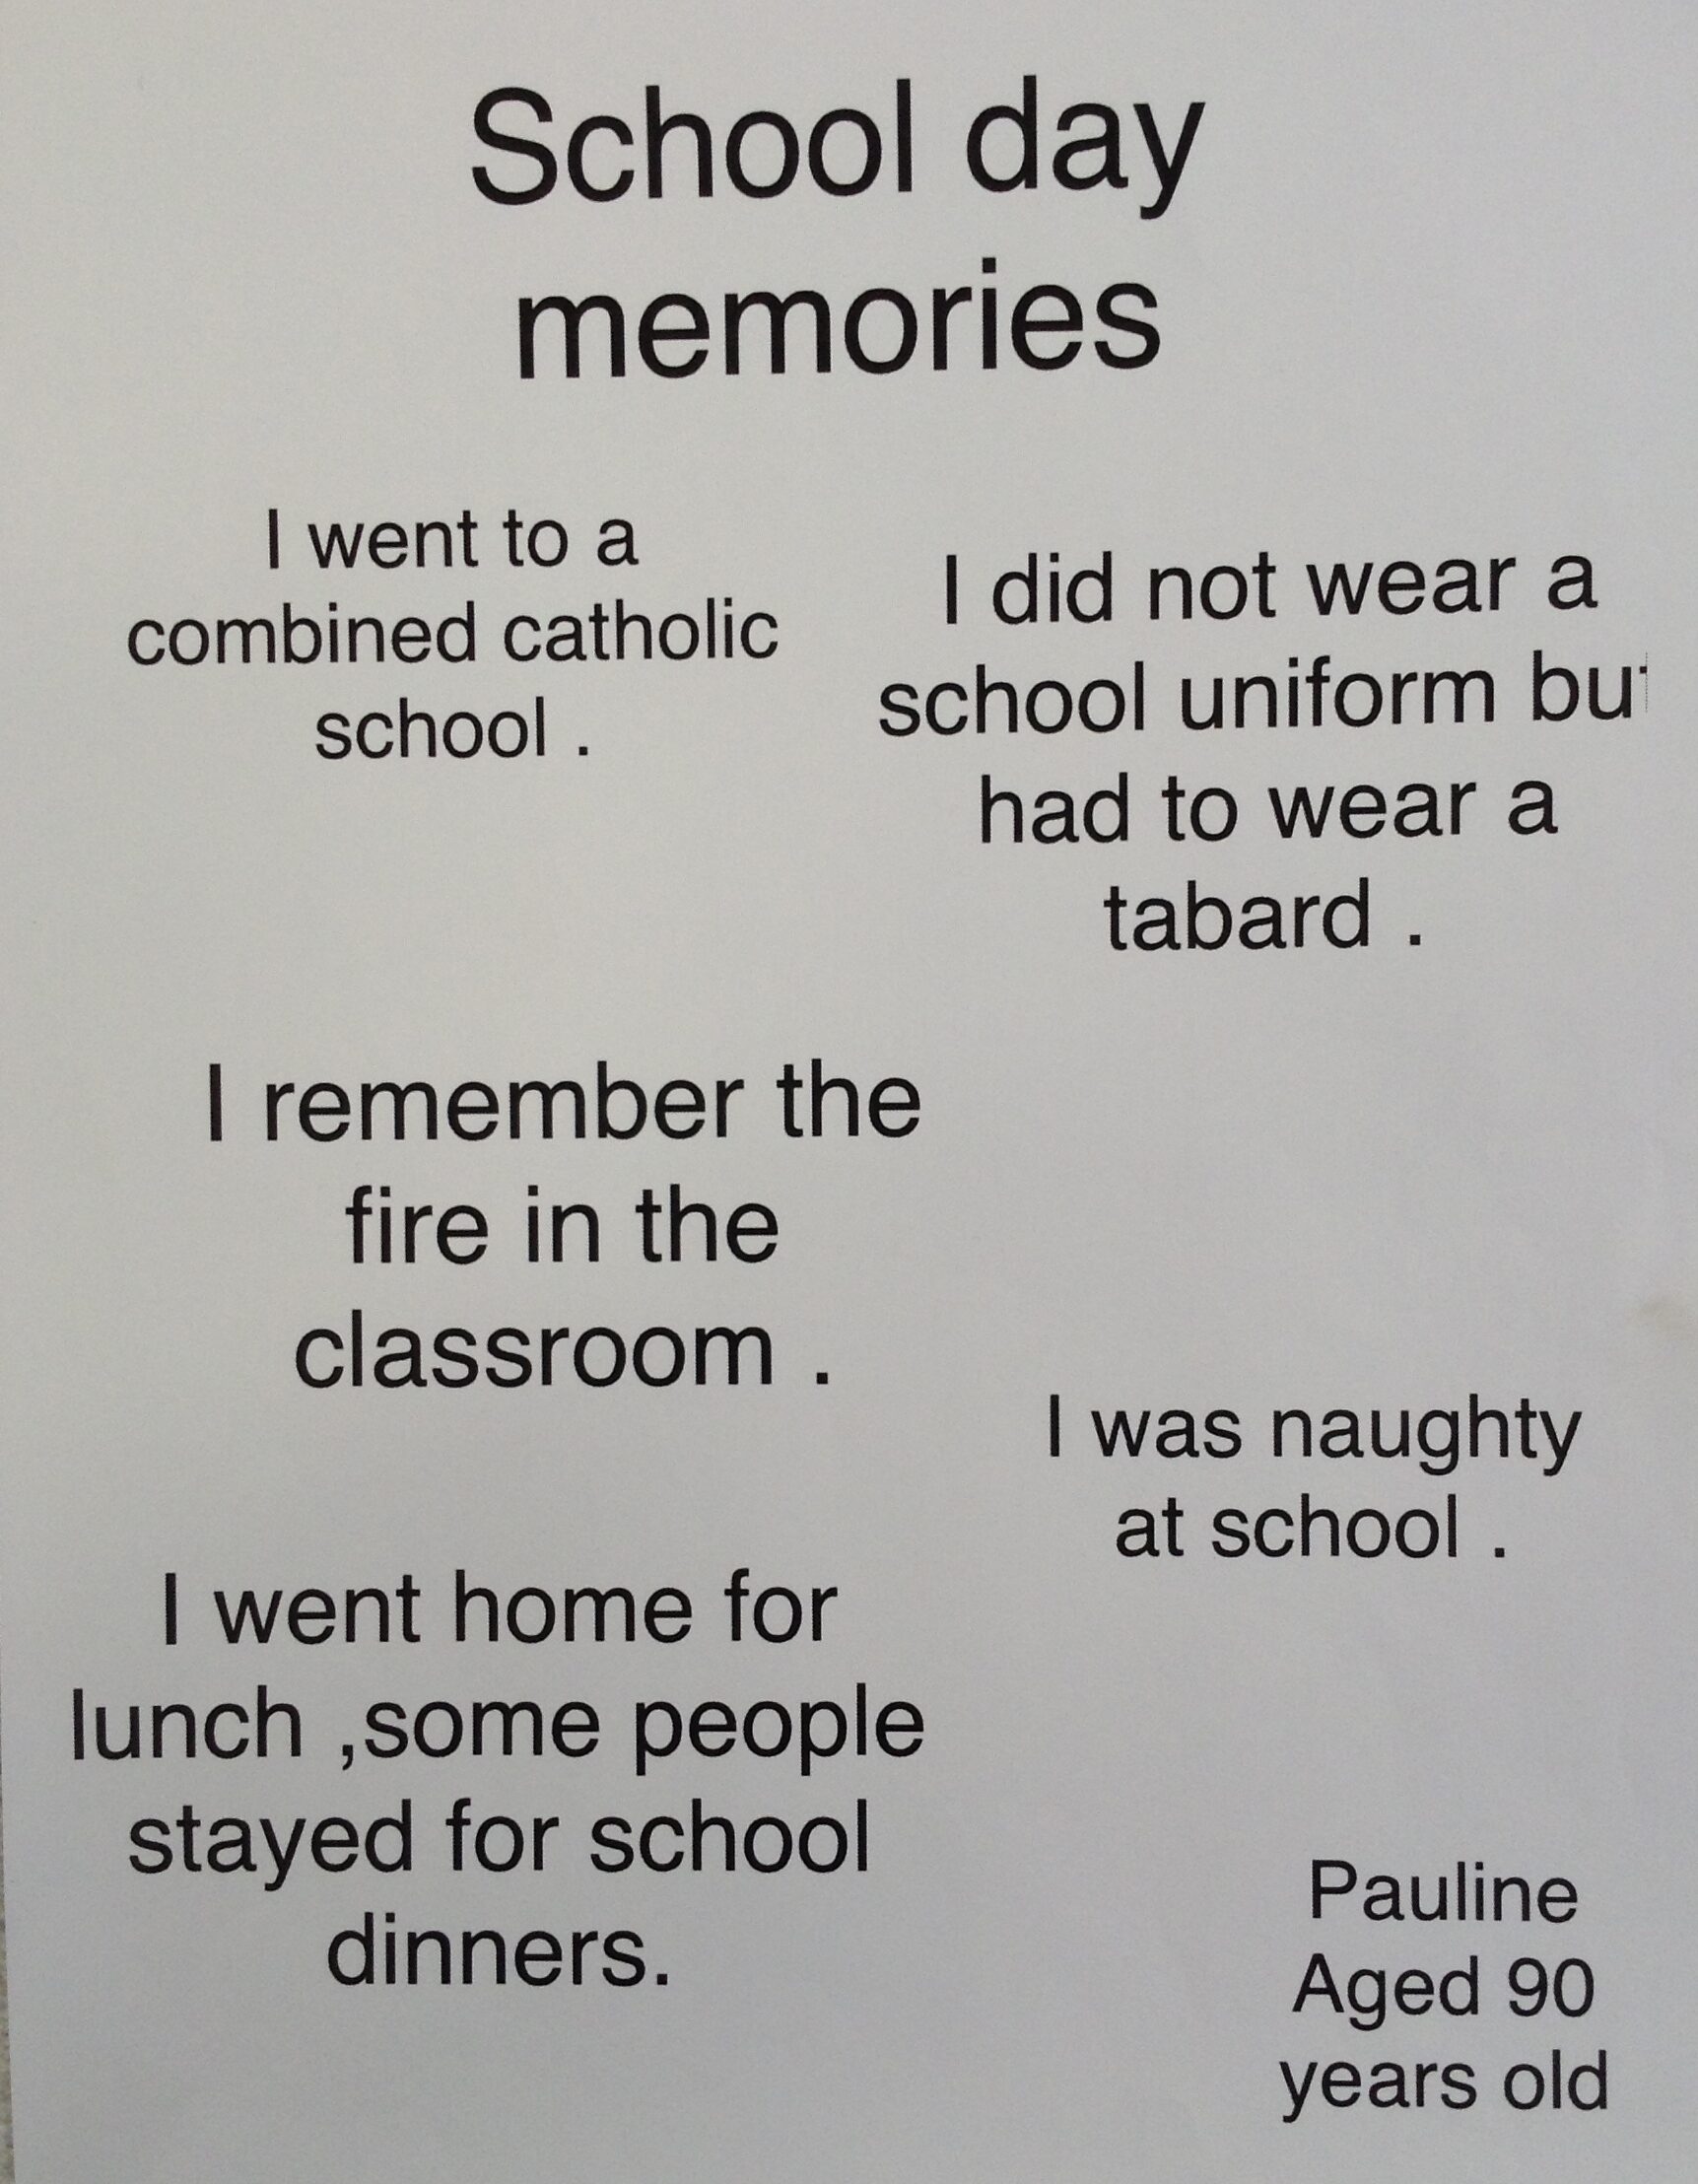 School day
memories
I went to a
combined catholic
school .
I did not wear a
school uniform but
had to wear a
tabard .
I remember the
fire in the
classroom .
I was naughty
at school .
I went home for
lunch ,some people
stayed for school
dinners.
Pauline
Aged 90
years old